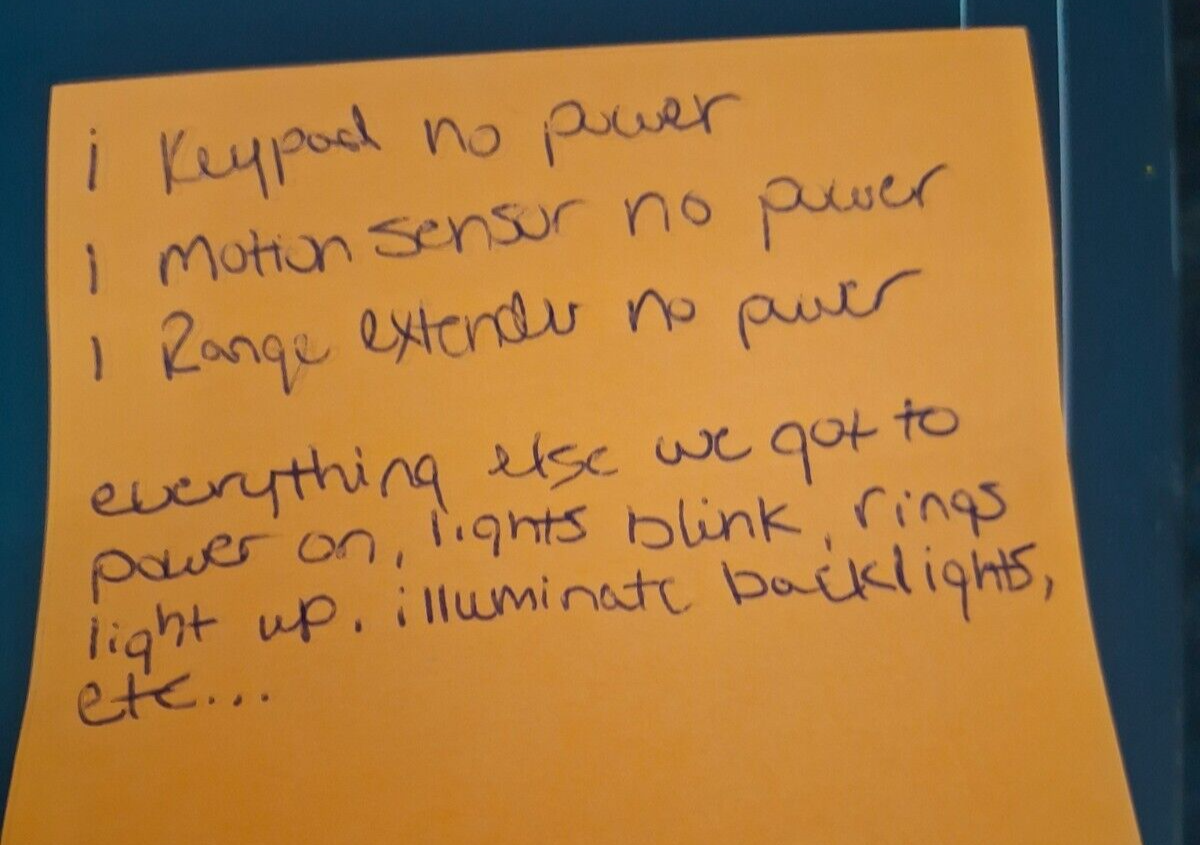 1 Keypad no power
1 Motion sensor no power
1 Range extender no power
everything else we got to
power on, lights blink, rings
light up. illuminate backlights,
etc...